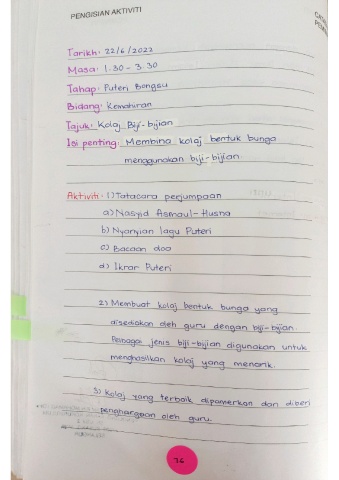 PENGISIAN AKTIVITI
Tarikh: 22/6/2022
Masa: 1.30 - 3.30
Tahap: Puteri Bongsu
Bidang: Kemahiran
Tajuk: Kolaj Biji-bijian
Isi penting: Membina kolaj bentuk bunga
menggunakan biji-bijian
Aktiviti: 1) Tatacara perjumpaan
a) Nasyid Asmaul-Husna
b) Nyanyian lagu Puteri
c) Bacaan doa
d) Ikrar Puteri
2) Membuat kolaj bentuk bunga yang
disediakan oleh guru dengan biji-bijian.
Pelbagai jenis biji-bijian digunakan untuk
menghasilkan kolaj yang menarik.
3) Kolaj yang terbaik dipamerkan dan diberi
penghargaan oleh guru.
76